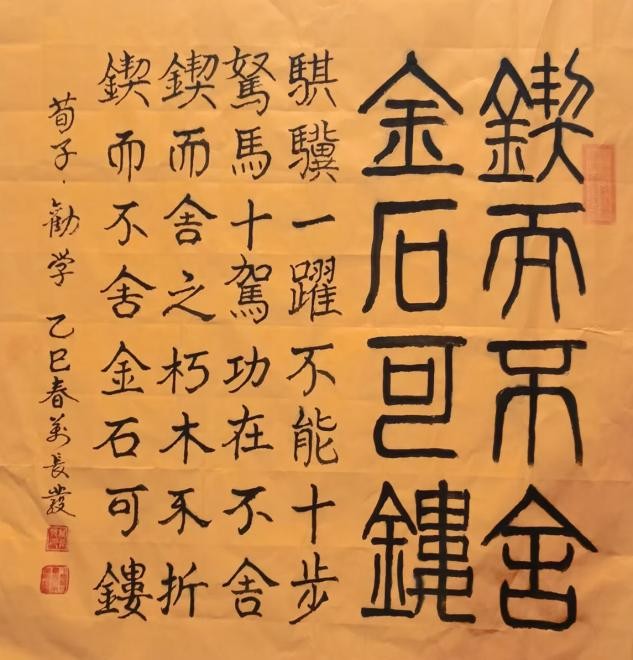 鍥而不舍
金石可鏤
騏驥一躍不能十步
駑馬十駕功在不舍
鍥而舍之朽木不折
鍥而不舍金石可鏤
荀子·勸学 乙巳春萬長發